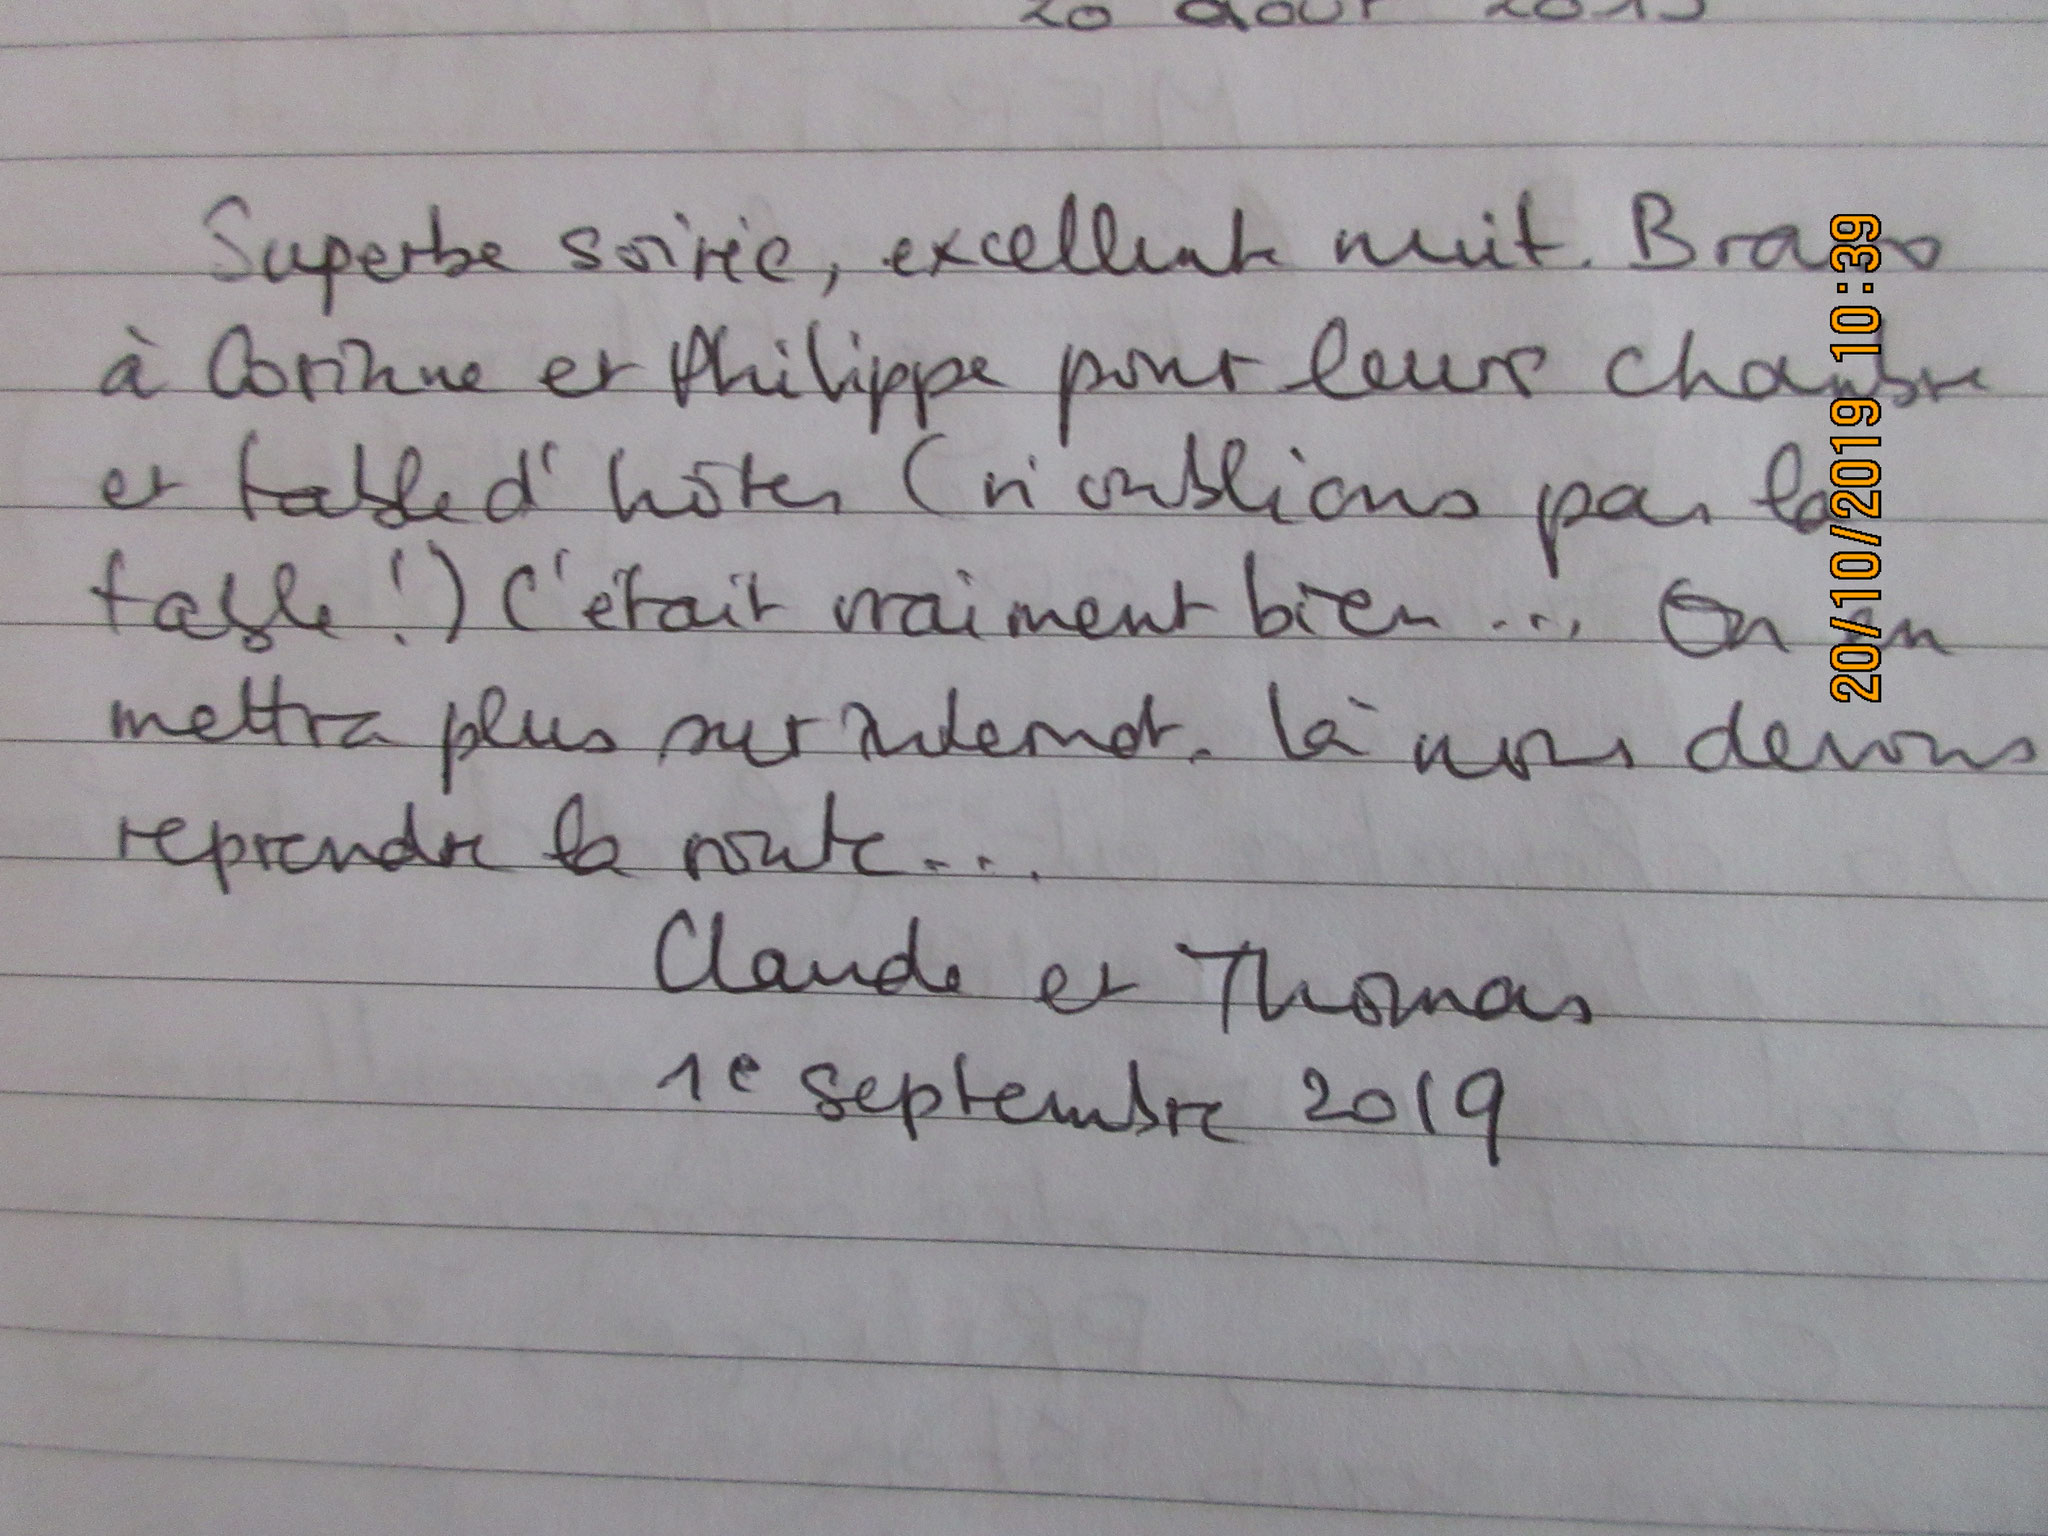 20 août 2019
Superbe soirée, excellente nuit. Bravo
à Corinne et Philippe pour leurs chambre
et table d'hôtes (n'oublions pas la
table !) C'était vraiment bien... On en
mettra plus sur internet. là nous devons
reprendre la route...
Claude et Thomas
1e septembre 2019
20/10/2019 10:39